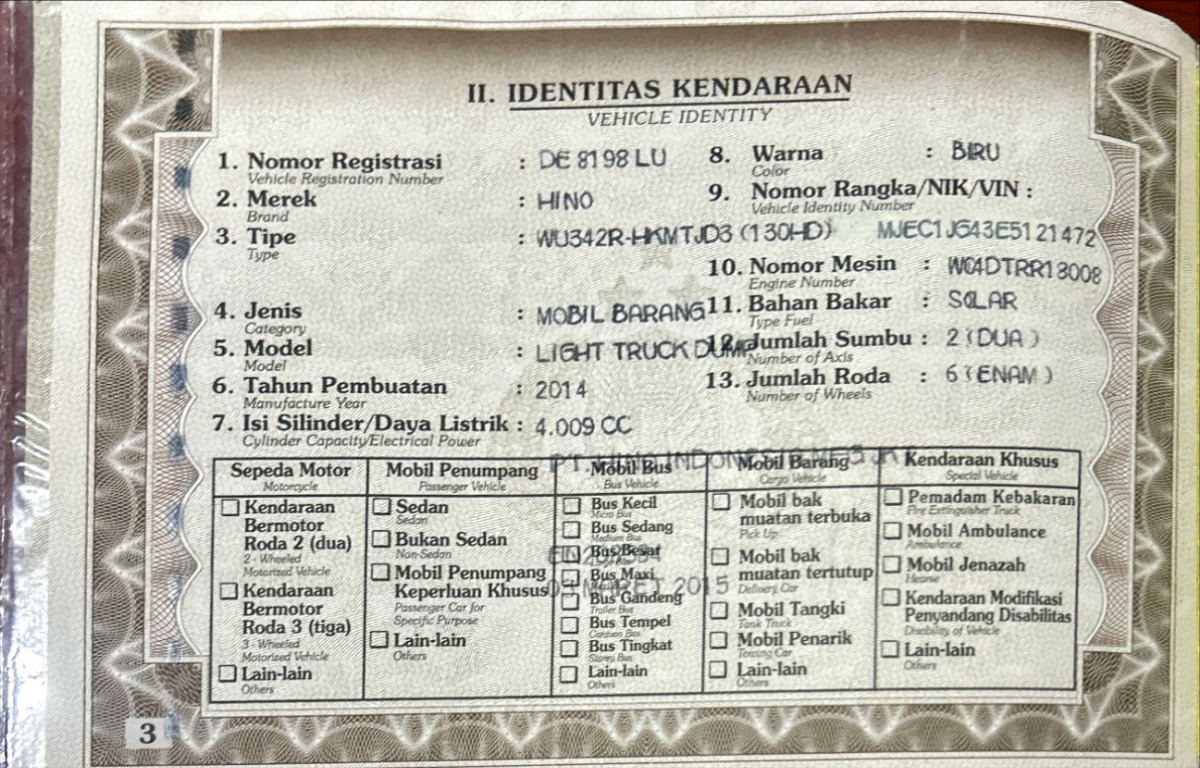 II. IDENTITAS KENDARAAN
VEHICLE IDENTITY
1. Nomor Registrasi : DE 8198 LU
Vehicle Registration Number
2. Merek : HINO
Brand
3. Tipe : WU342R-HKMTJD3 (130HD)
Type
4. Jenis : MOBIL BARANG
Category
5. Model : LIGHT TRUCK DUMP
Model
6. Tahun Pembuatan : 2014
Manufacture Year
7. Isi Silinder/Daya Listrik : 4.009 CC
Cylinder Capacity/Electrical Power
8. Warna : BIRU
Color
9. Nomor Rangka/NIK/VIN :
Vehicle Identity Number
MJEC1JG43E5121472
10. Nomor Mesin : W04DTRR13008
Engine Number
11. Bahan Bakar : SOLAR
Type Fuel
12. Jumlah Sumbu : 2 (DUA )
Number of Axis
13. Jumlah Roda : 6 (ENAM )
Number of Wheels
Sepeda Motor
Motorcycle
Kendaraan
Bermotor
Roda 2 (dua)
2 - Wheeled
Motorized Vehicle
Kendaraan
Bermotor
Roda 3 (tiga)
3 - Wheeled
Motorized Vehicle
Lain-lain
Others
Mobil Penumpang
Passenger Vehicle
Sedan
Sedan
Bukan Sedan
Non-Sedan
Mobil Penumpang
Keperluan Khusus
Passenger Car for
Specific Purpose
Lain-lain
Others
PT. HINO INDONESIA
Mobil Bus
Bus Vehicle
Bus Kecil
Micro Bus
Bus Sedang
Medium Bus
Bus Besar
Bus Maxi
MARET 2015
Bus Gandeng
Trailer Bus
Bus Tempel
Bus Tingkat
Storey Bus
Lain-lain
Others
Mobil Barang
Cargo Vehicle
Mobil bak
muatan terbuka
Pick Up
Mobil bak
muatan tertutup
Delivery Car
Mobil Tangki
Tank Truck
Mobil Penarik
Towing Car
Lain-lain
Others
Kendaraan Khusus
Special Vehicle
Pemadam Kebakaran
Fire Extinguisher Truck
Mobil Ambulance
Ambulance
Mobil Jenazah
Hearse
Kendaraan Modifikasi
Penyandang Disabilitas
Disability of Vehicle
Lain-lain
Others
3